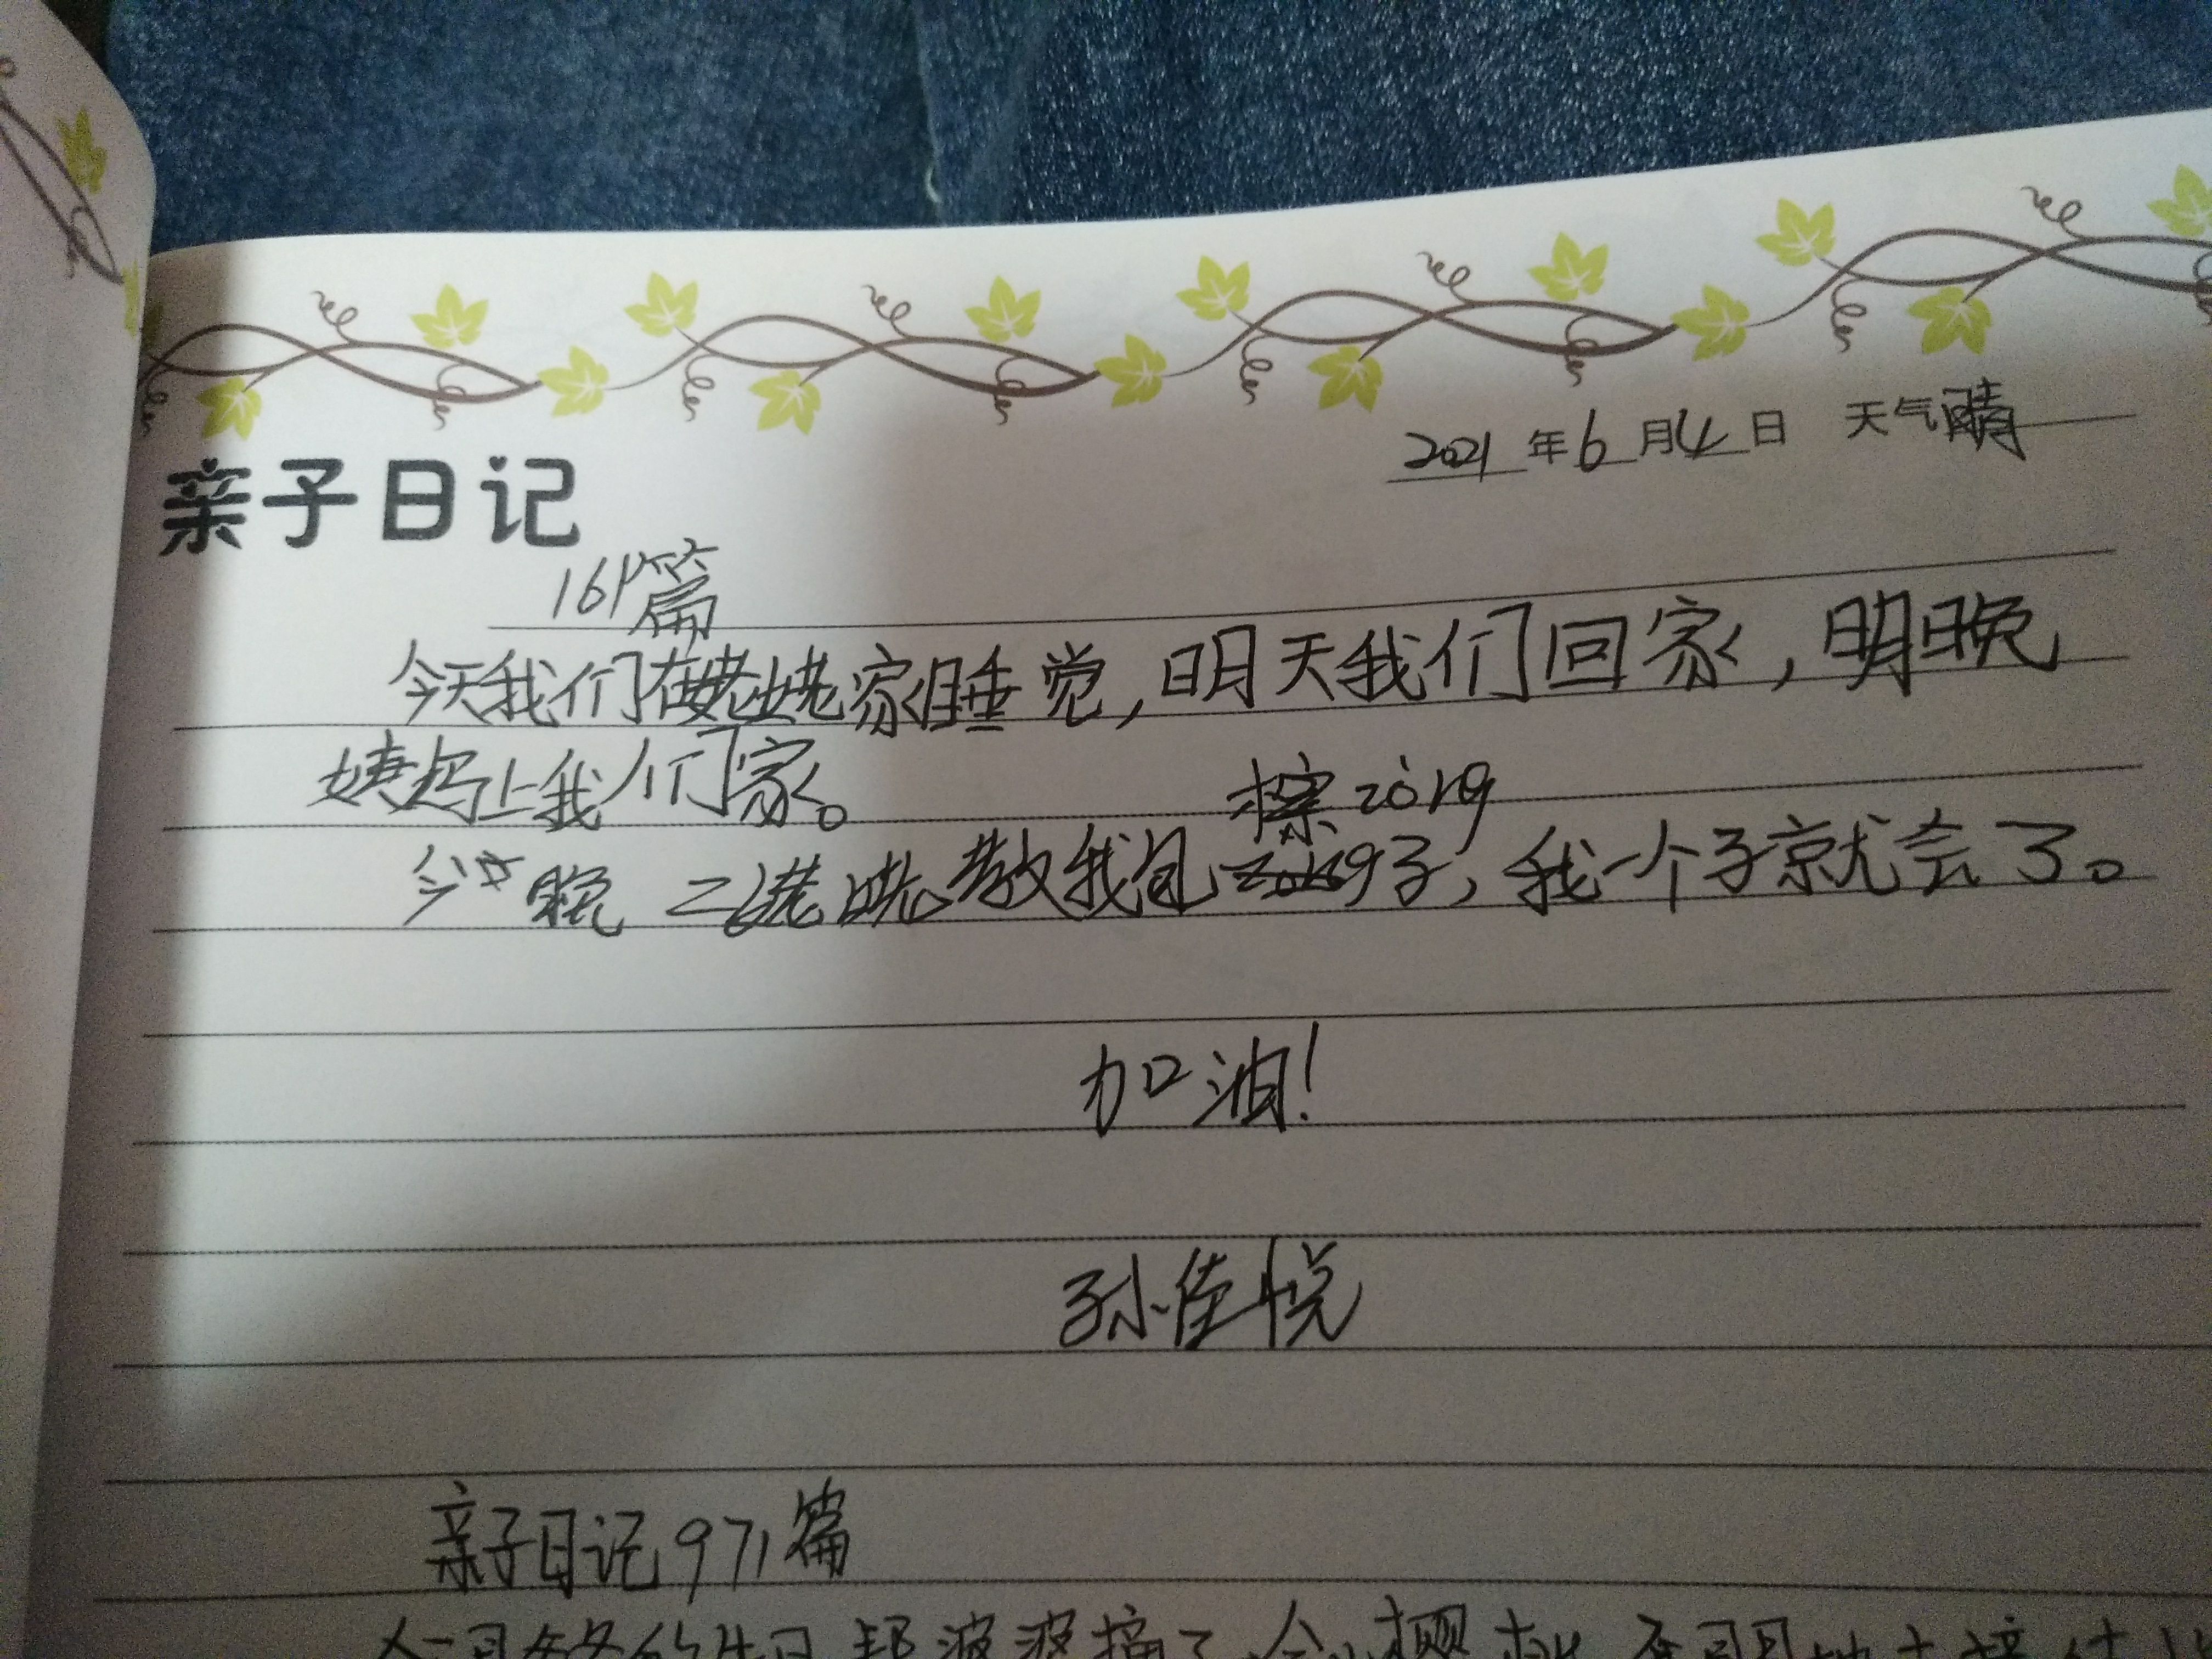 2021年6月4日 天气晴
亲子日记
161篇
今天我们在姥姥家睡觉,明天我们回家,明晚
姨妈上我们家。
粽zòng
今天晚二姥姥教我包子,我一个子就会了。
加油!
孙佳悦
亲子日记971篇